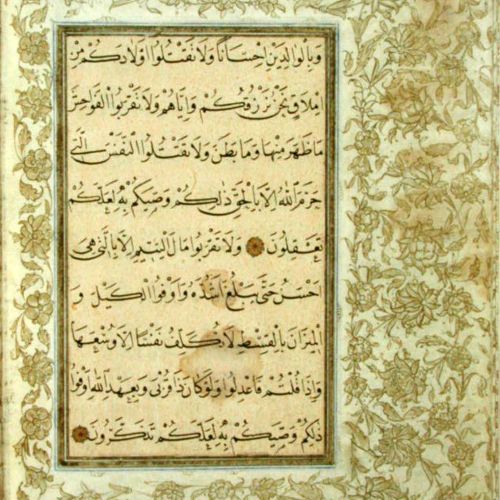 وَبِالْوَالِدَيْنِ اِحْسَانًا وَلَا تَقْتُلُوا اَوْلَادَكُمْ مِنْ
اِمْلَاقٍ نَحْنُ نَرْزُقُكُمْ وَاِيَّاهُمْ وَلَا تَقْرَبُوا الْفَوَاحِشَ
مَا ظَهَرَ مِنْهَا وَمَا بَطَنَ وَلَا تَقْتُلُوا النَّفْسَ الَّتِي
حَرَّمَ اللّٰهُ اِلَّا بِالْحَقِّ ذٰلِكُمْ وَصّٰيكُمْ بِهِ لَعَلَّكُمْ
تَعْقِلُونَ وَلَا تَقْرَبُوا مَالَ الْيَتِيمِ اِلَّا بِالَّتِي هِيَ
اَحْسَنُ حَتّٰى يَبْلُغَ اَشُدَّهُ وَاَوْفُوا الْكَيْلَ وَ
الْمِيزَانَ بِالْقِسْطِ لَا نُكَلِّفُ نَفْسًا اِلَّا وُسْعَهَا
وَاِذَا قُلْتُمْ فَاعْدِلُوا وَلَوْ كَانَ ذَا قُرْبٰى وَبِعَهْدِ اللّٰهِ اَوْفُوا
ذٰلِكُمْ وَصّٰيكُمْ بِهِ لَعَلَّكُمْ تَذَكَّرُونَ